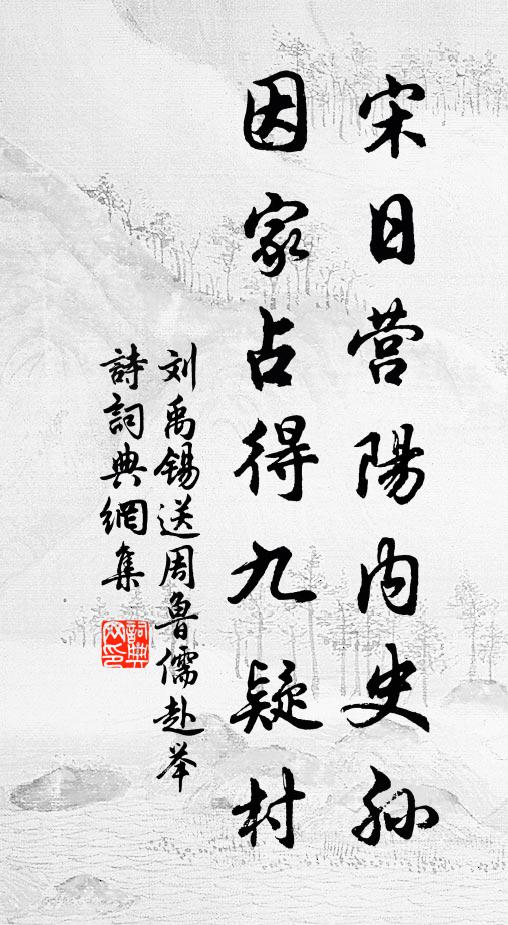 宋日营陽内史孙
因家占得九疑村
刘禹锡送周魯儒赴举
詩詞典網集
詞典网印